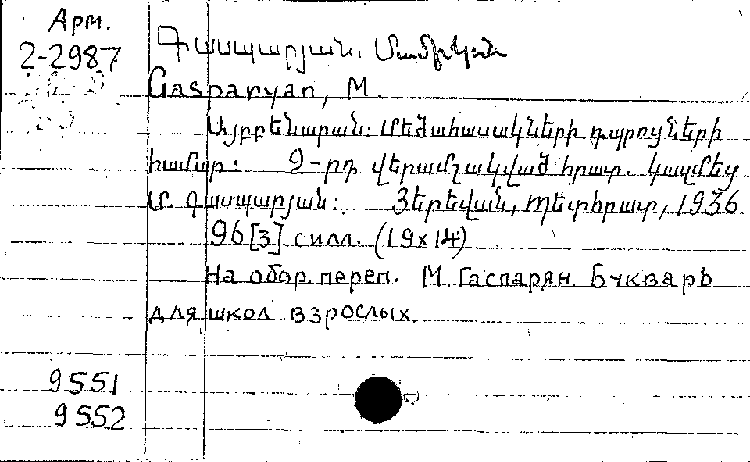 Арм.
2-2987
Գասպարյան, Մամիկոն
Gasparyan, M.
Այբբենարան: Մեծահասակների դպրոցների
համար: 2-րդ վերամշակված հրատ. Կազմեց
Մ. Գասպարյան: Յերեվան, Պետհրատ, 1936
96[3] силл. (19x14)
На обор. переп. М. Гаспарян. Букварь
для школ взрослых.
9551
9552